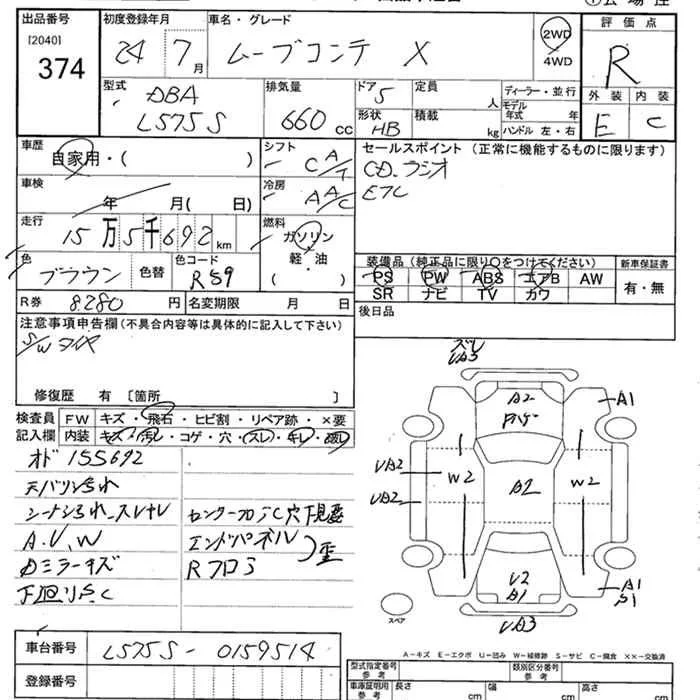 出品番号
[2040]
374
初度登録年月
24 7月
車名・グレード
ムーブコンテ X
2WD
4WD
評価点
R
外装 内装
E C
型式
DBA
L575S
排気量
660 cc
ドア 5
形状 HB
定員 人
積載 kg
ディーラー・並行
モデル年式 年
ハンドル 左・右
車歴
自家用・( )
車検
年 月( 日)
走行
15万5千692 km
シフト
CA/T
冷房
AAC
燃料
ガソリン
軽・油
( )
セールスポイント(正常に機能するものに限ります)
CD.ラジオ
ETC
色
ブラウン
色替
色コード
R59
R券 8.280 円
名変期限 月 日
装備品(純正品に限り○をつけてください)
PS PW ABS エアB AW
SR ナビ TV カワ
新車保証書
有・無
後日品
注意事項申告欄(不具合内容等は具体的に記入して下さい)
S/Wタイヤ
修復歴 有[箇所 ]
検査員記入欄
FW キズ・飛石・ヒビ割・リペア跡・×要
内装 キズ・汚レ・コゲ・穴・スレ・キレ・
オド 155692
A.U,W
エンドパネル
Rフロア
歪
下廻りS.C
UA3
A2
A1
UA2
UA2
W2
A2
W2
U2
A1
A1
S1
UA3
スペア
A-キズ E-エクボ U-凹み W-補修跡 S-サビ C-腐食 ××-交換済
車台番号 L575S-0159514
登録番号
型式指定番号 参考
類別区分番号 参考
車庫証明用 参考
長さ cm
幅 cm
高さ cm